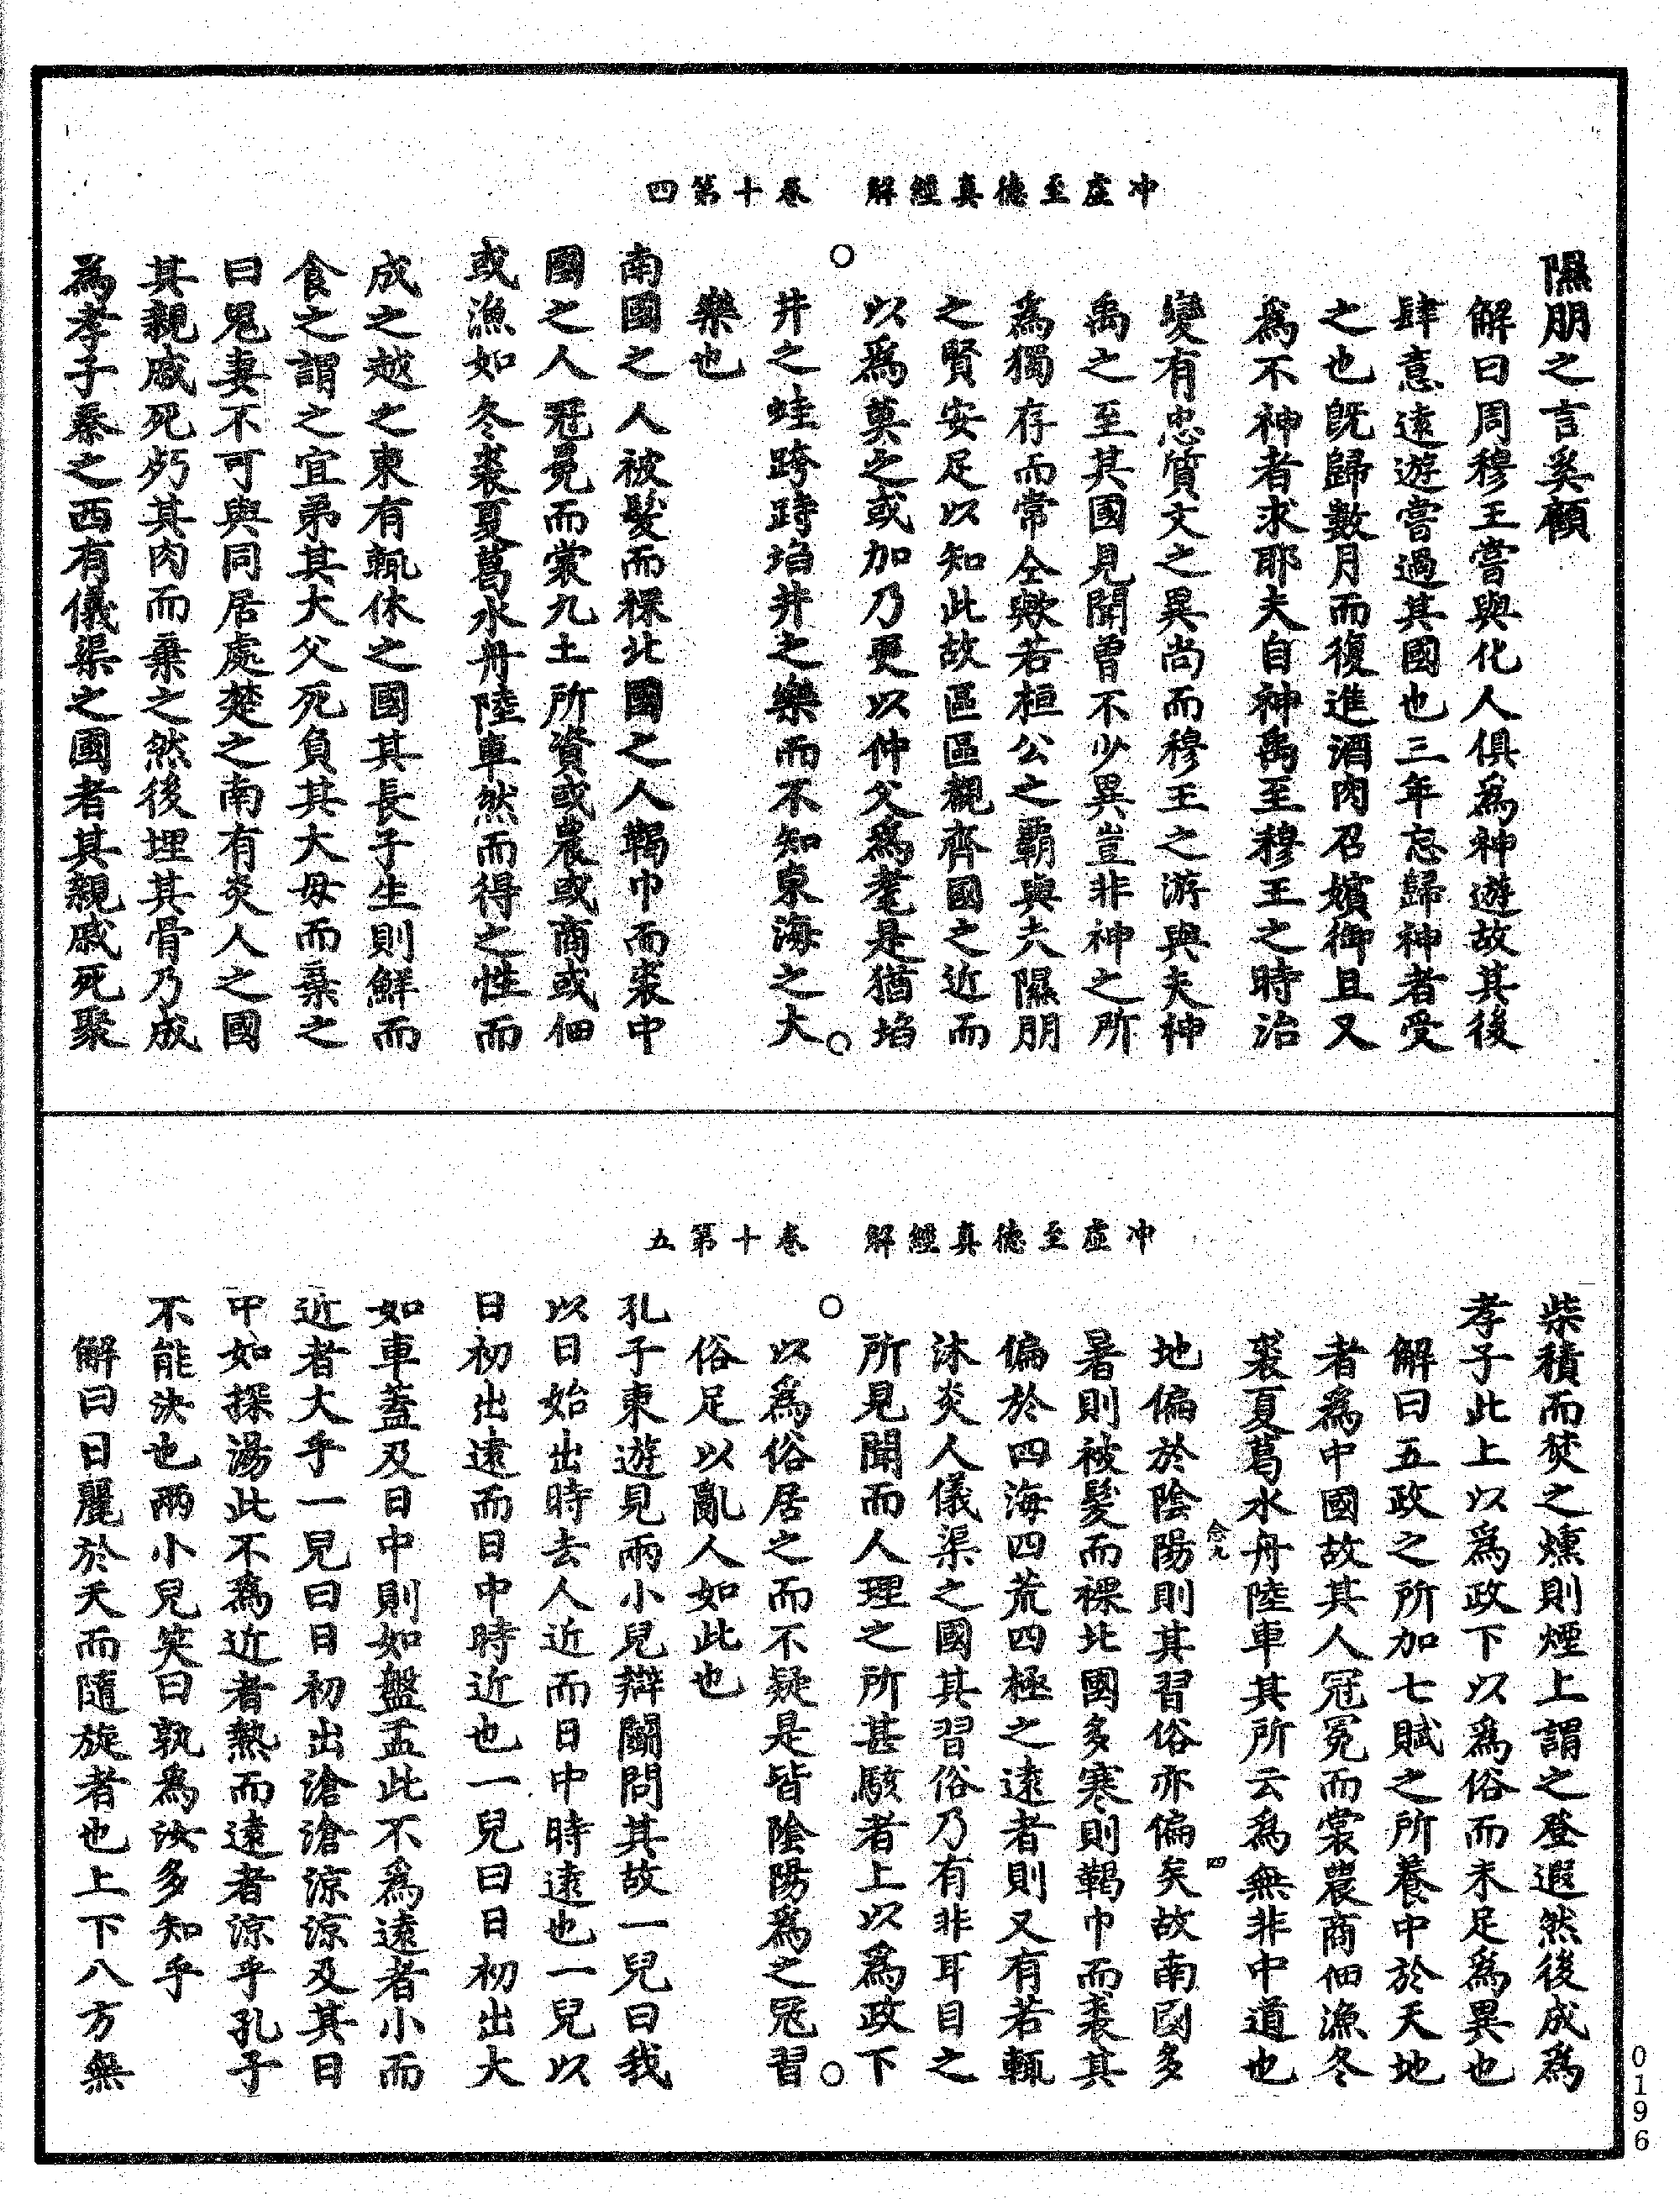 冲虛至德真經解　卷十第四
隰朋之言奚顧
解曰周穆王嘗與化人俱爲神遊故其後
肆意遠遊嘗過其國也三年忘歸神者受
之也旣歸數月而復進酒肉召嬪御且又
爲不神者求耶夫自神禹至穆王之時治
變有忠質文之異尚而穆王之游與夫神
禹之至其國見聞曾不少異豈非神之所
爲獨存而常全歟若桓公之霸與夫隰朋
之賢安足以知此故區區觀齊國之近而
以爲莫之或加乃更以仲父爲耄是猶埳
井之蛙跨跱埳井之樂而不知東海之大
樂也
南國之人被髮而裸北國之人鞨巾而裘中
國之人冠冕而裳九土所資或農或商或佃
或漁如冬裘夏葛水舟陸車然而得之性而
成之越之東有輒休之國其長子生則鮮而
食之謂之宜弟其大父死負其大母而棄之
曰鬼妻不可與同居處楚之南有炎人之國
其親戚死㱙其肉而棄之然後埋其骨乃成
為孝子秦之西有儀渠之國者其親戚死聚
冲虛至德真經解　卷十第五
柴積而焚之燻則煙上謂之登遐然後成爲
孝子此上以爲政下以爲俗而未足爲異也
解曰五政之所加七賦之所養中於天地
者爲中國故其人冠冕而裳農商佃漁冬
裘夏葛水舟陸車其所云爲無非中道也
地偏於陰陽則其習俗亦偏矣故南國多
暑則被髮而裸北國多寒則鞨巾而裘其
偏於四海四荒四極之遠者則又有若輒
沐炎人儀渠之國其習俗乃有非耳目之
所見聞而人理之所甚駭者上以爲政下
以爲俗居之而不疑是皆陰陽爲之冠習
俗足以亂人如此也
孔子東遊見兩小兒辯鬭問其故一兒曰我
以日始出時去人近而日中時遠也一兒以
日初出遠而日中時近也一兒曰日初出大
如車蓋及日中則如盤盂此不爲遠者小而
近者大乎一兒曰日初出滄滄涼涼及其日
中如探湯此不爲近者熱而遠者涼乎孔子
不能決也兩小兒笑曰孰爲汝多知乎
解曰日麗於天而隨旋者也上下八方無
0196